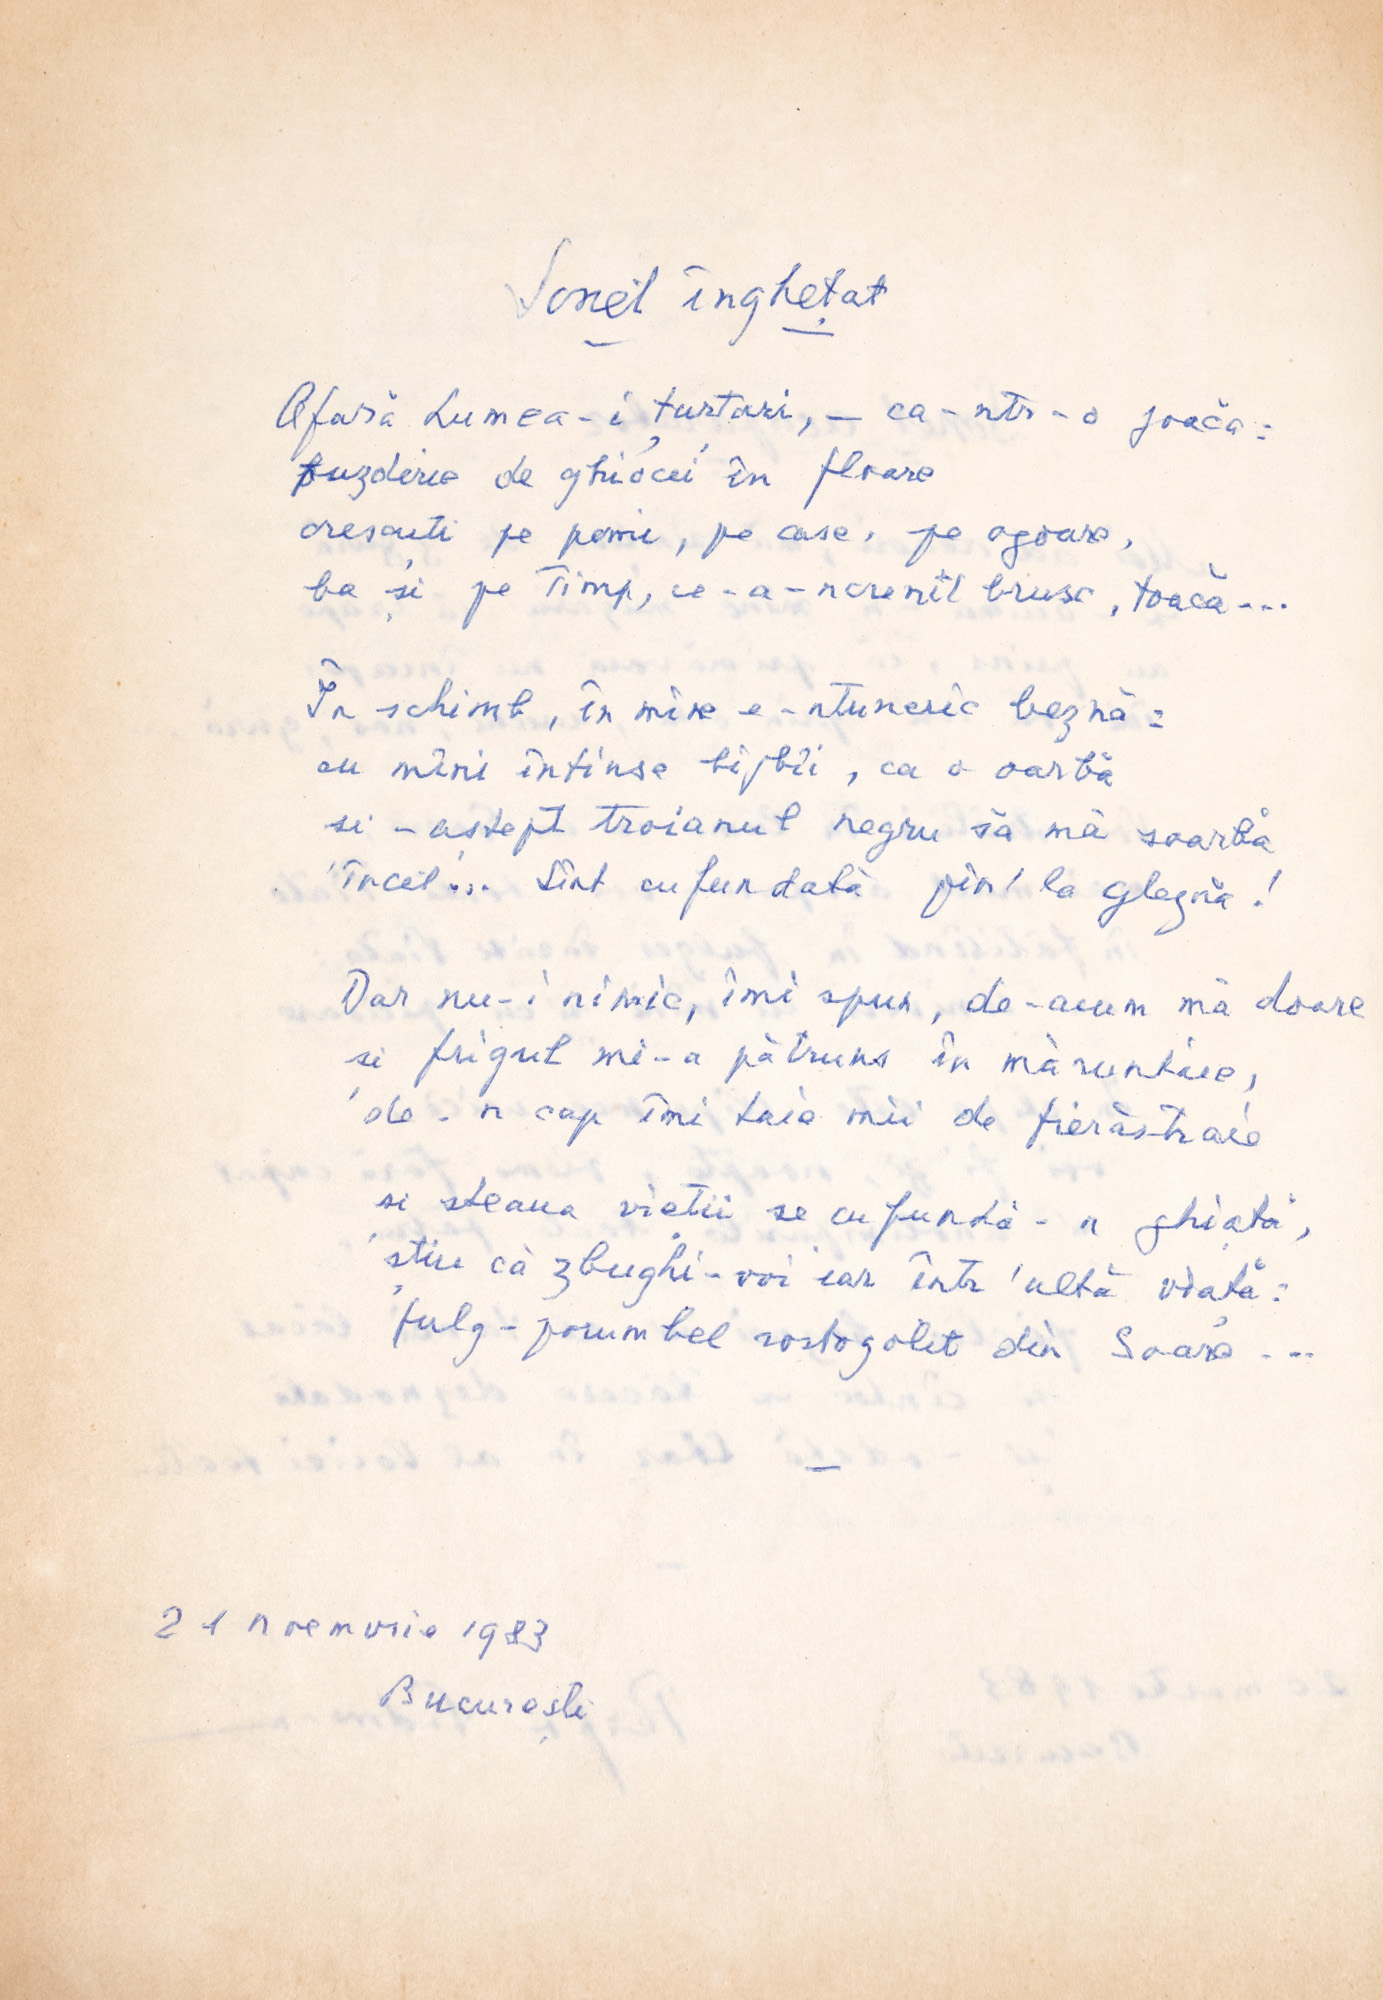 Sonet înghețat
Afară Lumea-i țurțuri, – ca-ntr-o joacă:
puzderie de ghiocei în floare
crescuți pe pomi, pe case, pe ogoare,
ba și pe Timp, ce-a-ncremenit brusc, toacă...
În schimb, în mine e-ntuneric beznă:
cu mîni întinse bîjbîi, ca o oarbă
și-aștept troianul negru să mă soarbă
încet... Sînt cufundată pîn' la gleznă!
Dar nu-i nimic, îmi spun, de-acum mă doare
și frigul mi-a pătruns în măruntaie,
de-n cap îmi taie mii de fierăstraie
și steaua vieții se cufundă-n ghiață,
știu că zbughi-voi iar într'altă viață:
fulg-porumbel rostogolit din Soare...
21 noemvrie 1983
București